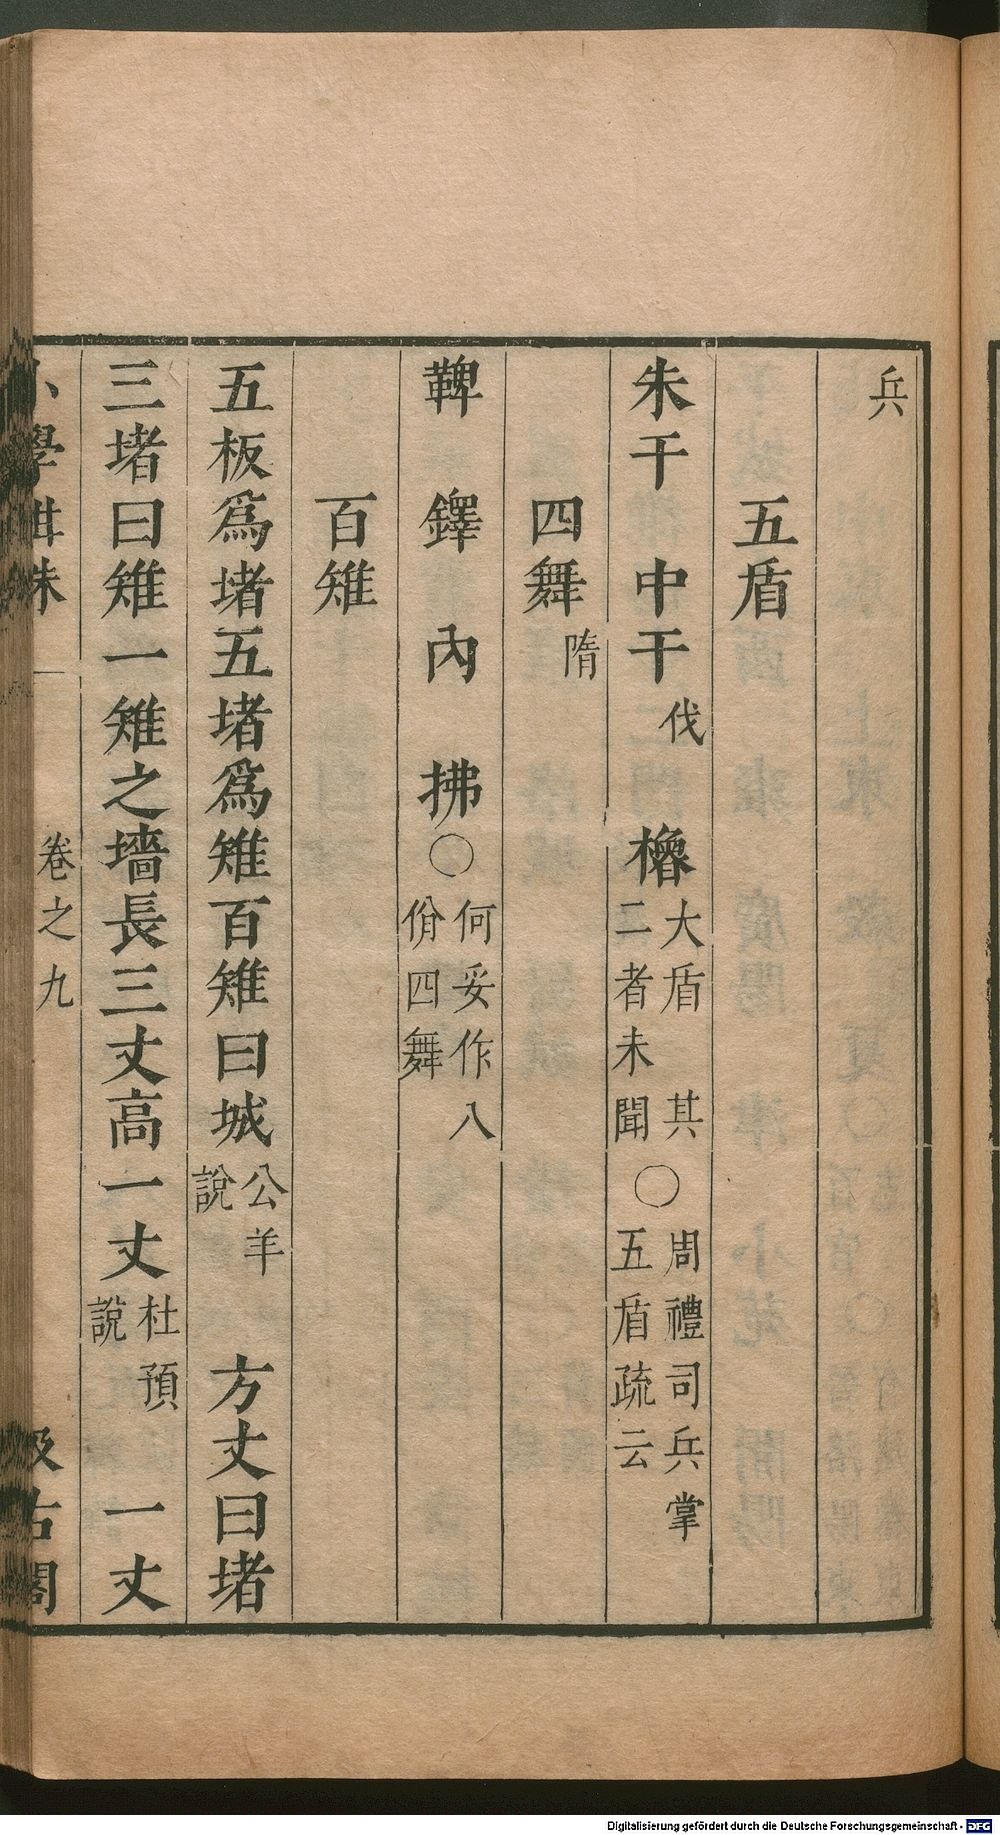 兵
五盾
朱干 中干伐 櫓大盾 其二者未聞○周禮司兵掌五盾疏云
四舞隋
鞞 鐸 內 拂○何妥作八佾四舞
百雉
五板爲堵五堵爲雉百雉曰城公羊說 方丈曰堵
三堵曰雉一雉之墻長三丈高一丈杜預說 一丈
小學 卷之九 汲古閣
Digitalisierung gefördert durch die Deutsche Forschungsgemeinschaft - DFG